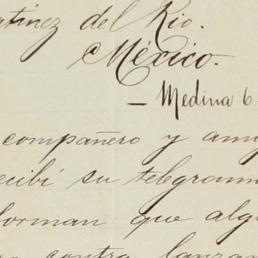 rtinez del Rio.
México.
— Medina 6
compañero y ami
cibí su telegram
forman que alg
contra lanza